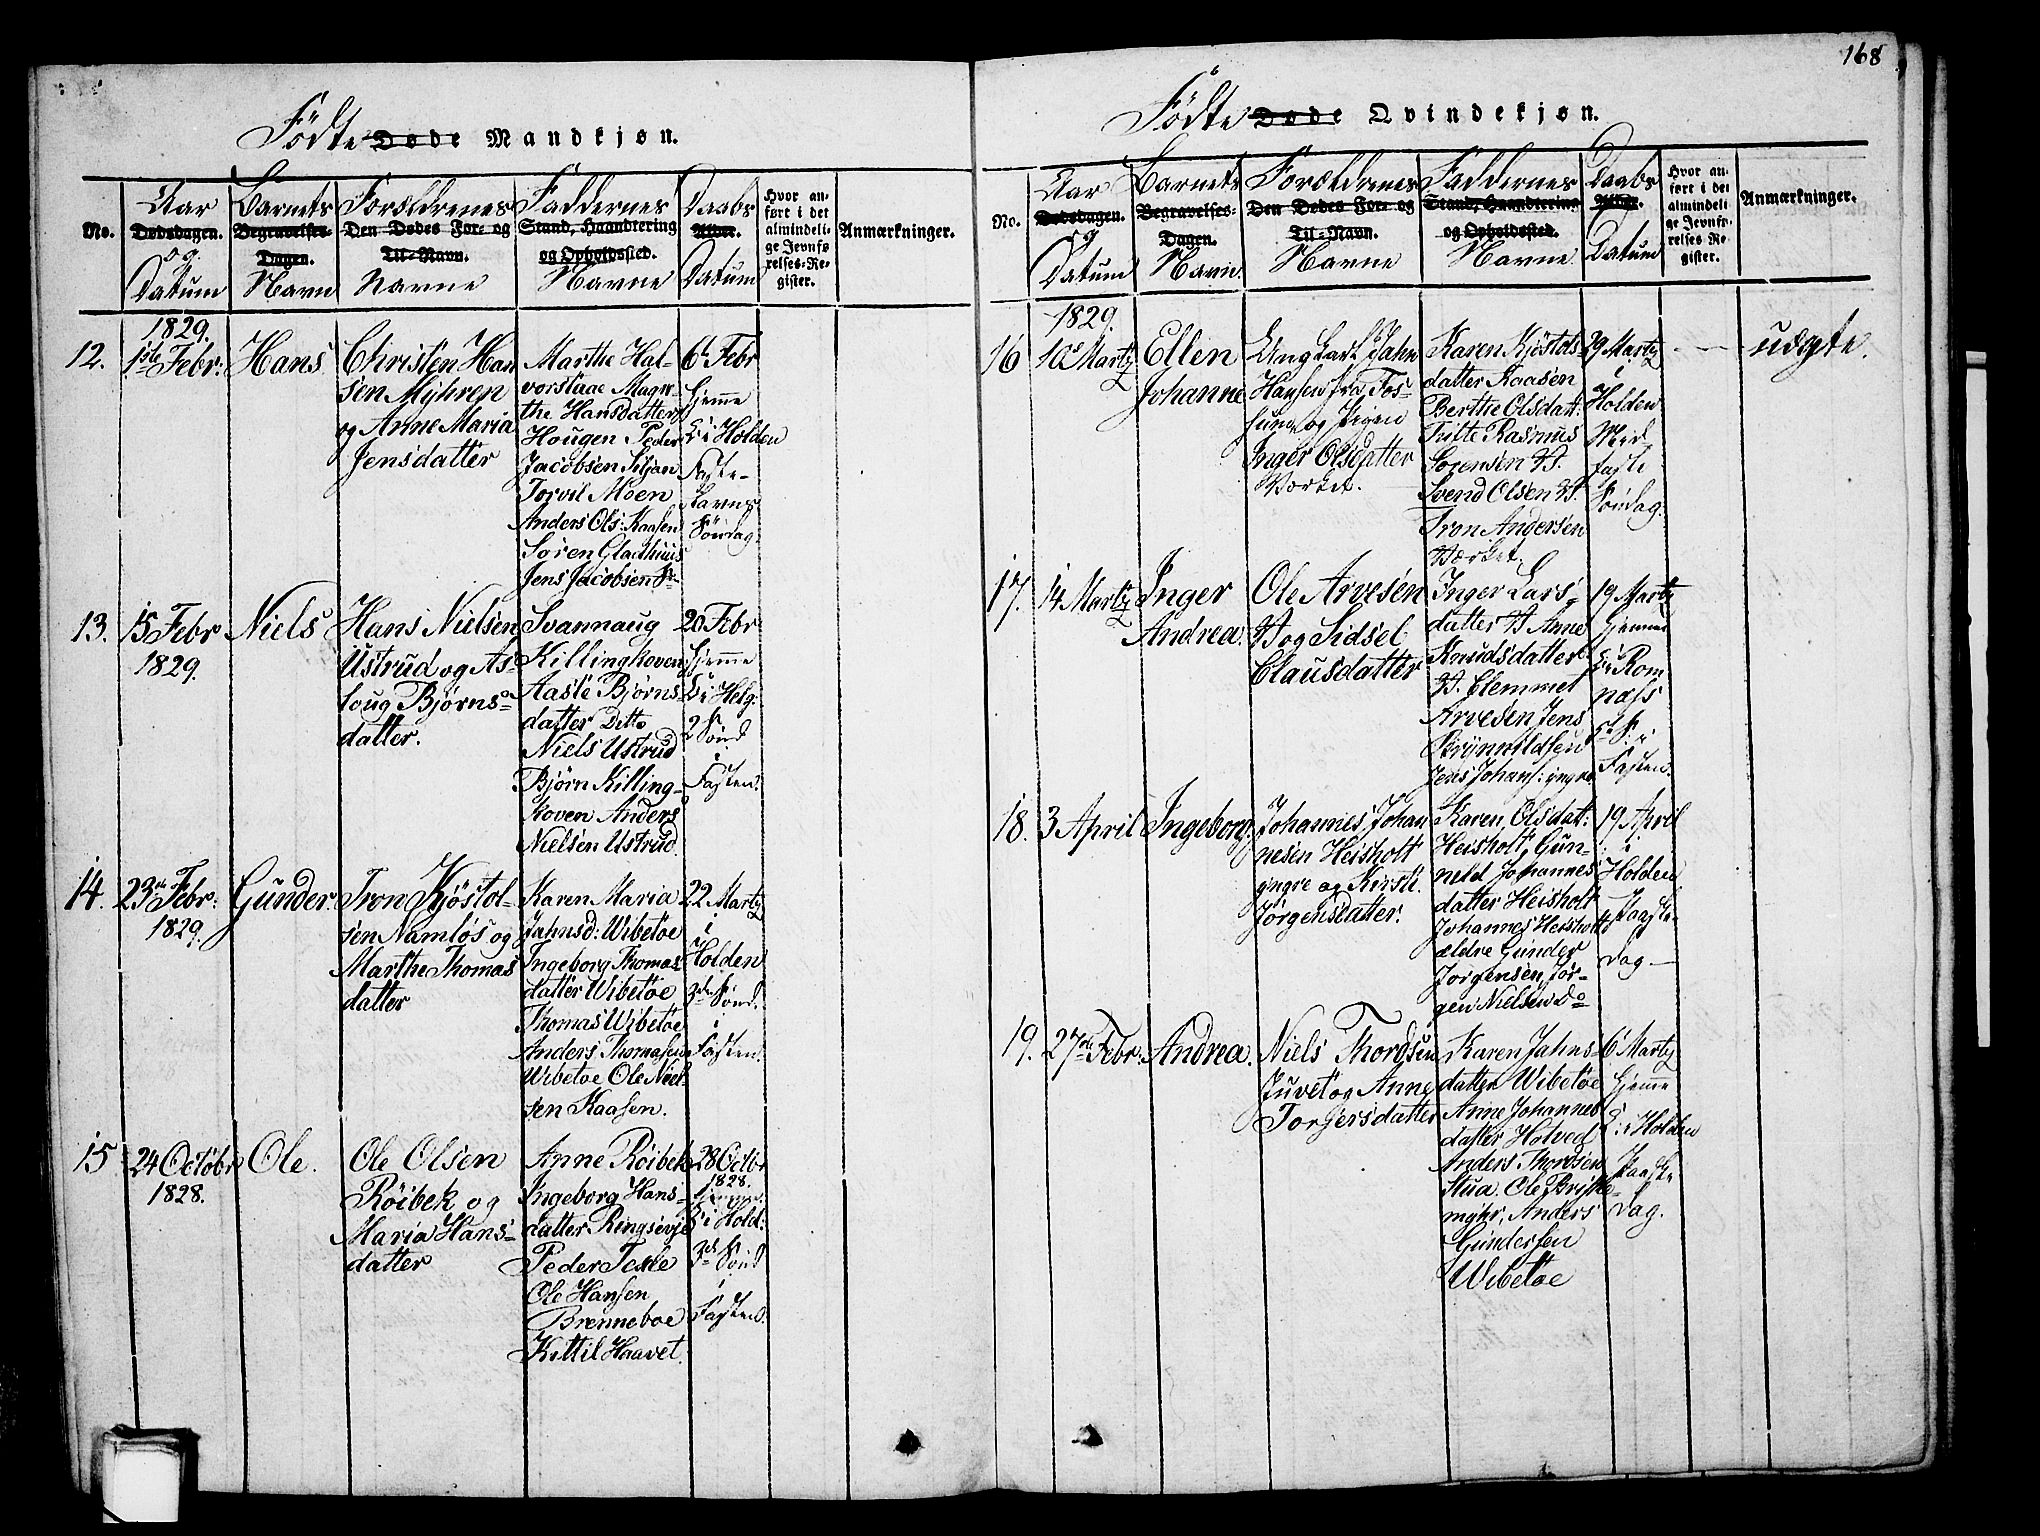 168
Födte Døde Mandkjøn.
No.
Aar
Dødsdagen.
og
Datum
Barnets
Begravelses-
Dagen.
Navn
Forældrenes
Den Dødes For- og
Til-Navn.
Navne
Faddernes
Stand, Haandtering
og Opholdssted.
Navne
Daabs
Alder.
Datum
Hvor an-
ført i det
almindeli-
ge Jevnfø-
relses-Re-
gister.
Anmærkninger.
12.
1829.
1ste Febr:
Hans
Christen Han
sen Myhren
og Anne Maria
Jensdatter
Marthe Hal-
vorsdaae Magre-
the Hansdatter
Hougen Peder
Jacobsen Siljan
Torvil Moen
Anders Ols: Kaasen
Søren Gladhuus
Jens Jacobsen
6t Febr
hjemme
i Holden
Faste-
lavns
Söndag.
13.
15 Febr
1829.
Niels
Hans Nielsen
Ustrud og As-
loug Bjørns-
datter.
Svannaug
Killingkoven
Aaste Bjørns
datter Ditto
Niels Ustrud
Bjørn Killing-
koven Anders
Nielsen Ustrud.
20 Febr
hjemme
i Helg:
2 Sönd
i
Fasten.
14.
23de Febr:
1829.
Gunder.
Tron Kjöstol-
sen Namløs og
Marthe Thomas
datter
Karen Maria
Jahnsd: Wibetoe
Ingeborg Thomas
datter Wibetoe
Thomas Wibetoe
Anders Thomasen
Wibetoe Ole Niel-
sen Kaasen.
22 Marty
i
Holden
3de Sönd.
i
Fasten.
15
24 Octobr
1828.
Ole.
Ole Olsen
Röibek og
Maria Hans-
datter
Anne Röibek
Ingeborg Hans-
datter Ringsevje
Peder Texle
Ole Hansen
Brenneboe
Kittil Haavet.
28 Octbr
1828.
hjemme
i Hold:
3de Sönd
i
Fasten.
Födte Døde Qvindekjøn.
No.
Aar
Dødsdagen.
og
Datum
Barnets
Begravelses-
Dagen.
Navn
Forældrenes
Den Dødes For- og
Til-Navn.
Navne
Faddernes
Stand, Haandtering
og Opholdssted.
Navne
Daabs
Alder.
Datum
Hvor an-
ført i det
almindeli-
ge Jevnfø-
relses-Re-
gister.
Anmærkninger.
16
1829.
10de Marty
Ellen
Johanne
Ung Karl Jahn
Hansen fra Fos-
sum og Pigen
Inger Olsdatter
Værket.
Karen Kjöstols-
datter Kaasen
Berthe Olsdat:
Tritte Rasmus
Sörensen V.
Svend Olsen V.
Tron Andersen
Værket.
29 Marty
i
Holden
Mid-
faste
Söndag.
udgte.
17.
14 Marty
Inger
Andrea.
Ole Arvesen
V og Sidsel
Clausdatter
Inger Lars-
datter V Anne
Knudsdatter
V. Clemmet
Arvesen Jens
Brynnildsen
Jens Johans: yngre
19 Marty
hjemme
i Rom
næss
i
Fasten.
18.
3 April
Ingeborg.
Johannes Johan
nesen Heisholt
yngre og Kirsti
Jørgensdatter.
Karen Olsdat:
Heisholt, Gun-
neld Johannes
datter Heisholt
Johannes Heisholt
ældre Gunder
Jørgensen, Jör-
gen Nielsen Do
19 April
i
Holden
Paaske-
dag
19.
27de Febr:
Andrea.
Niels Thordsen
Juvet og Anne
Torgersdatter
Karen Jahns-
datter Wibetoe
Anne Johannes
datter Hotved
Anders Thordsen
Stua. Ole Brÿthe-
mÿhr, Anders
Gundersen
Wibetoe
6 Marty
hjemme
i Holden
Paaske
dag.